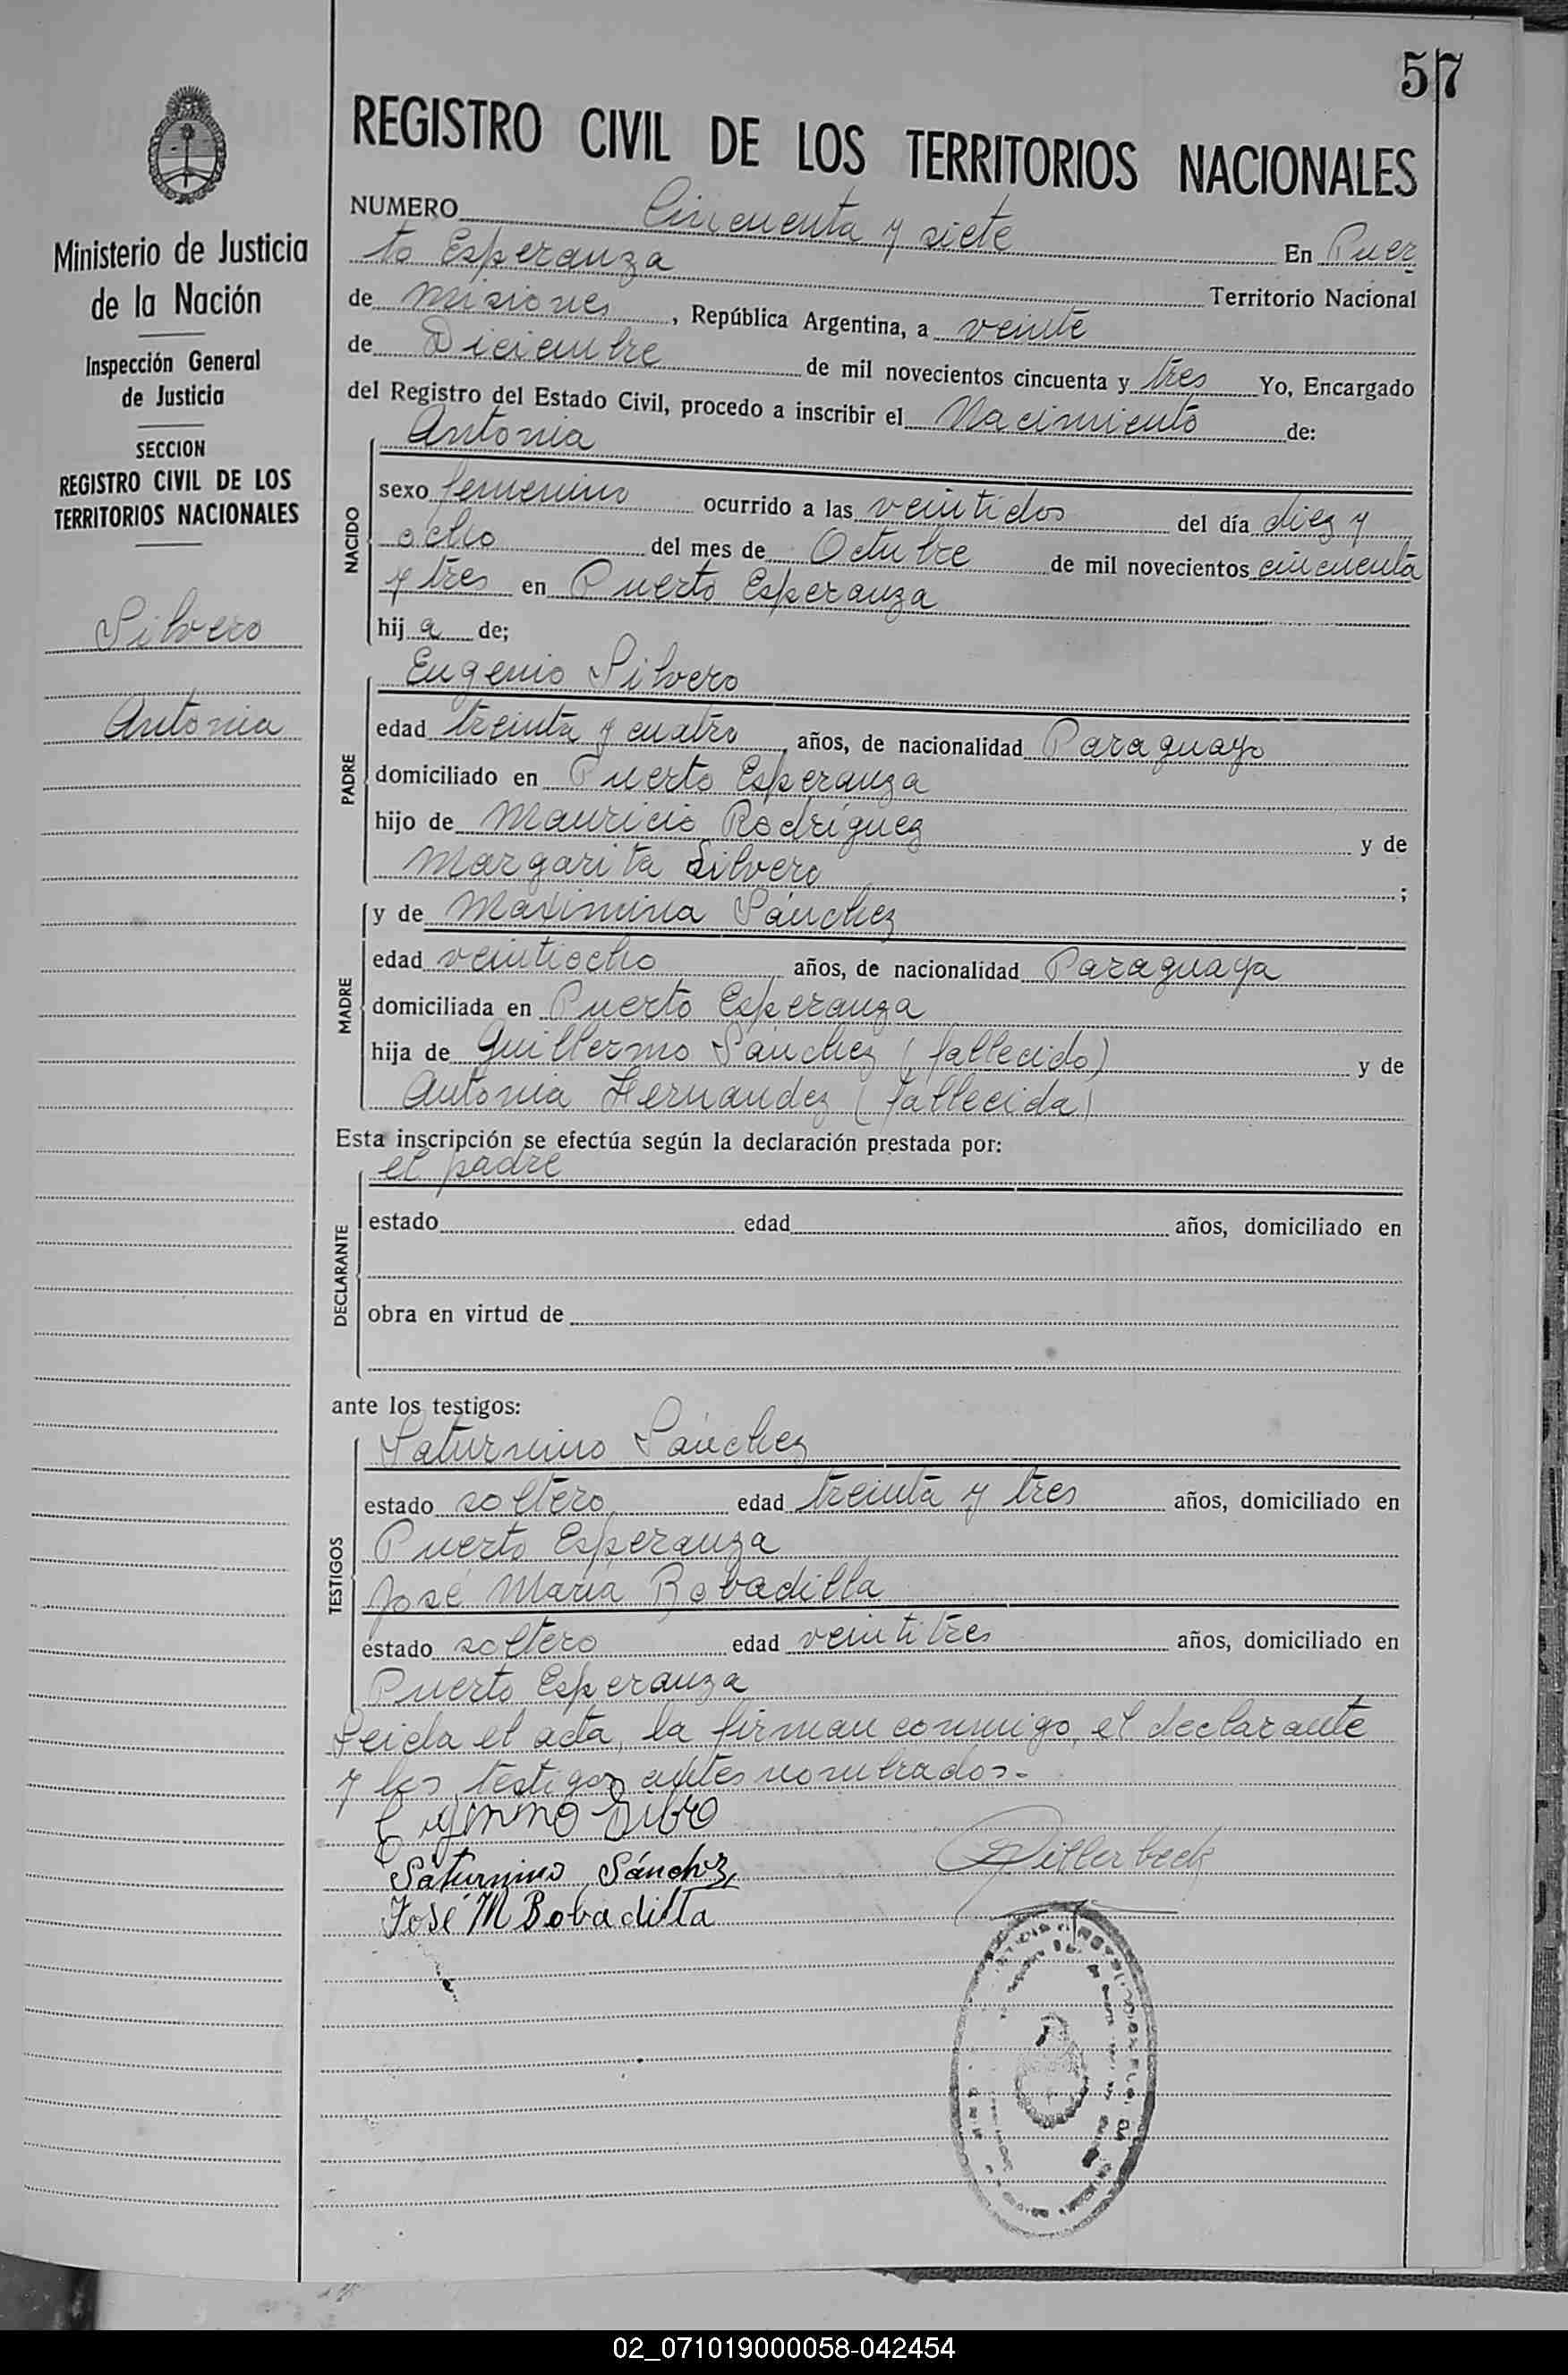 57
Ministerio de Justicia
de la Nación
Inspección General
de Justicia
SECCION
REGISTRO CIVIL DE LOS
TERRITORIOS NACIONALES
Silvero
Antonia
REGISTRO CIVIL DE LOS TERRITORIOS NACIONALES
NUMERO Cincuenta y siete En Puer
to Esperanza Territorio Nacional
de Misiones, República Argentina, a veinte
de Diciembre de mil novecientos cincuenta y tres Yo, Encargado
del Registro del Estado Civil, procedo a inscribir el Nacimiento de:
NACIDO
Antonia
sexo femenino ocurrido a las veintidos del día diez y
ocho del mes de Octubre de mil novecientos cincuenta
y tres en Puerto Esperanza
hij a de;
PADRE
Eugenio Silvero
edad treinta y cuatro años, de nacionalidad Paraguayo
domiciliado en Puerto Esperanza
hijo de Mauricio Rodríguez y de
Margarita Silvero ;
MADRE
y de Maximina Sánchez
edad veintiocho años, de nacionalidad Paraguaya
domiciliada en Puerto Esperanza
hija de Guillermo Sánchez (fallecido) y de
Antonia Fernandez (fallecida)
Esta inscripción se efectúa según la declaración prestada por:
DECLARANTE
el padre
estado edad años, domiciliado en
obra en virtud de
ante los testigos:
TESTIGOS
Saturnino Sánchez
estado soltero edad treinta y tres años, domiciliado en
Puerto Esperanza
José María Bobadilla
estado soltero edad veintitres años, domiciliado en
Puerto Esperanza
Leida el acta, la firman conmigo, el declarante
y los testigos antes nombrados.-
Saturnino Sánchez
José M Bobadilla
02_071019000058-042454